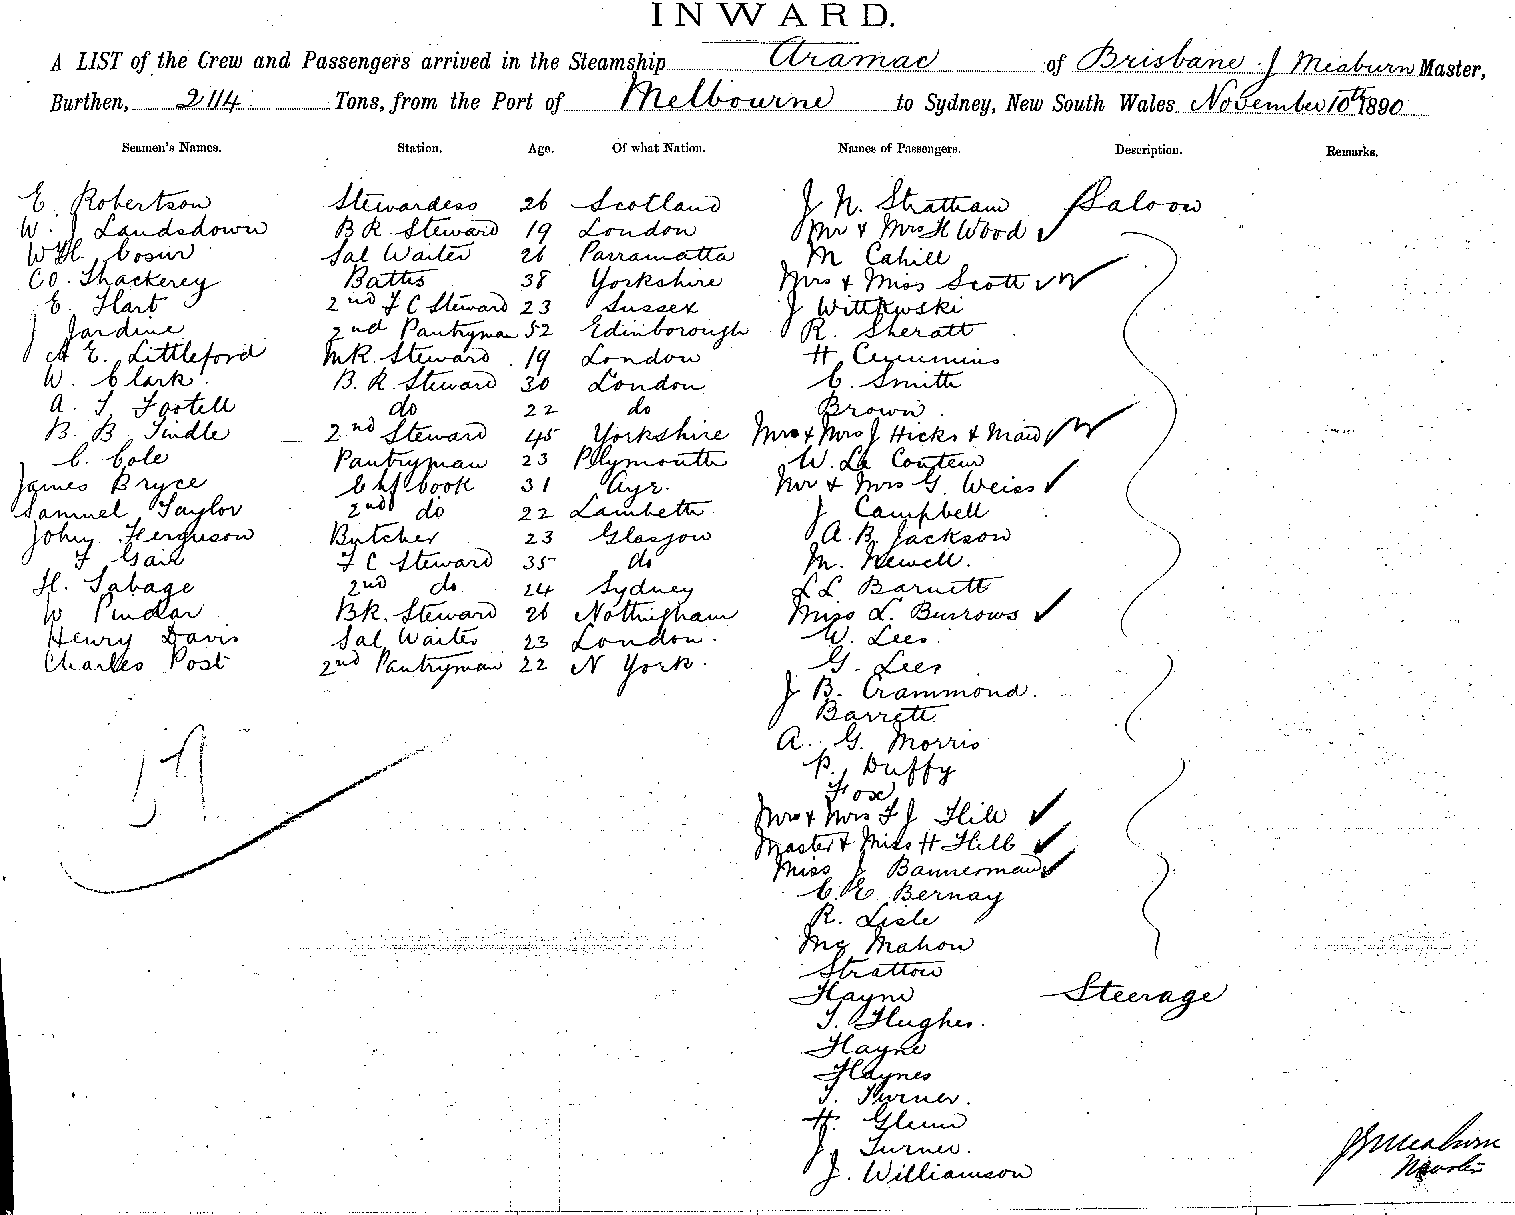 INWARD.
A LIST of the Crew and Passengers arrived in the Steamship Aramac of Brisbane J Meaburn Master,
Burthen, 2114 Tons, from the Port of Melbourne to Sydney, New South Wales November 10th 1890
Seamen's Names. Station. Age. Of what Nation. Names of Passengers. Description. Remarks.
E. Robertson Stewardess 26 Scotland J N. Strattam Saloon
W. J Landsdown B R Steward 19 London Mr & Mrs H Wood
W H. Sal Waiter 26 Parramatta M Cahill
Thackerey Baths 38 Yorkshire Mrs & Miss Scott
E. Hart 2nd F C Steward 23 Sussex J Wittkowski
J Jardine 2nd Pantryman 52 Edinborough R. Sheratt
A E. Littleford MR. Steward 19 London H Cummins
W. Clark B. R Steward 30 London C. Smith
A. T Footell do 22 do Brown
B. B Tindle 2nd Steward 45 Yorkshire Mr & Mrs J Hicks & Maid
C. Cole Pantryman 23 Plymouth W. Le Couteur
James Bryce Chf Cook 31 Ayr. Mr & Mrs G. Weiss
Samuel Taylor 2nd do 22 Lambeth J Campbell
John Ferguson Butcher 23 Glasgow A. B. Jackson
F Gair F C Steward 35 do M. Newell.
H. Sabage 2nd do 24 Sydney L L Barnett
W Pindar BR. Steward 26 Nottingham Miss L. Burrows
Henry Davis Sal Waiter 23 London. W. Lees
Charles Post 2nd Pantryman 22 N York. G. Lees
J B. Crammond.
Barrett
A. G. Morris
P. Duffy
Fox
Mr & Mrs F J Hill
Master & Miss H Hill
Miss J Bannerman
C. E Bernay
R. Lisle
Mc Mahon
Stratton
Hayne Steerage
T. Hughes.
Hayne
Haynes
T. Turner.
H. Glenn
J. Turner.
J. Williamson
19
J Meaburn
Master